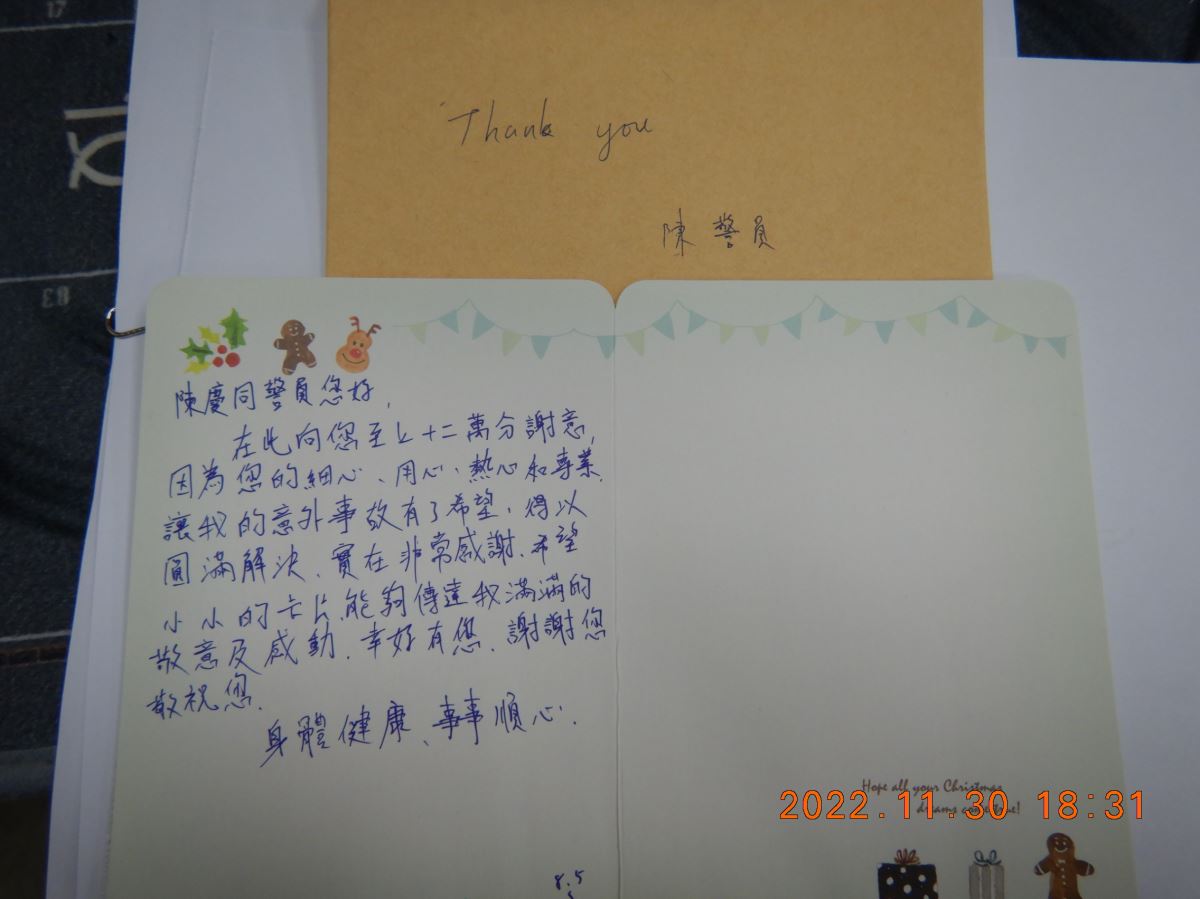 17
Thank you
陳警員
83
陳慶同警員您好,
在此向您至上十二萬分謝意,
因為您的細心、用心、熱心和專業.
讓我的意外事故有了希望,得以
圓滿解決、實在非常感謝.希望
小小的卡片能夠傳達我滿滿的
敬意及感動.幸好有您、謝謝您
敬祝您.
身體健康、事事順心.
8.5
Hope all your Christmas
dreams come true!
2022.11.30 18:31